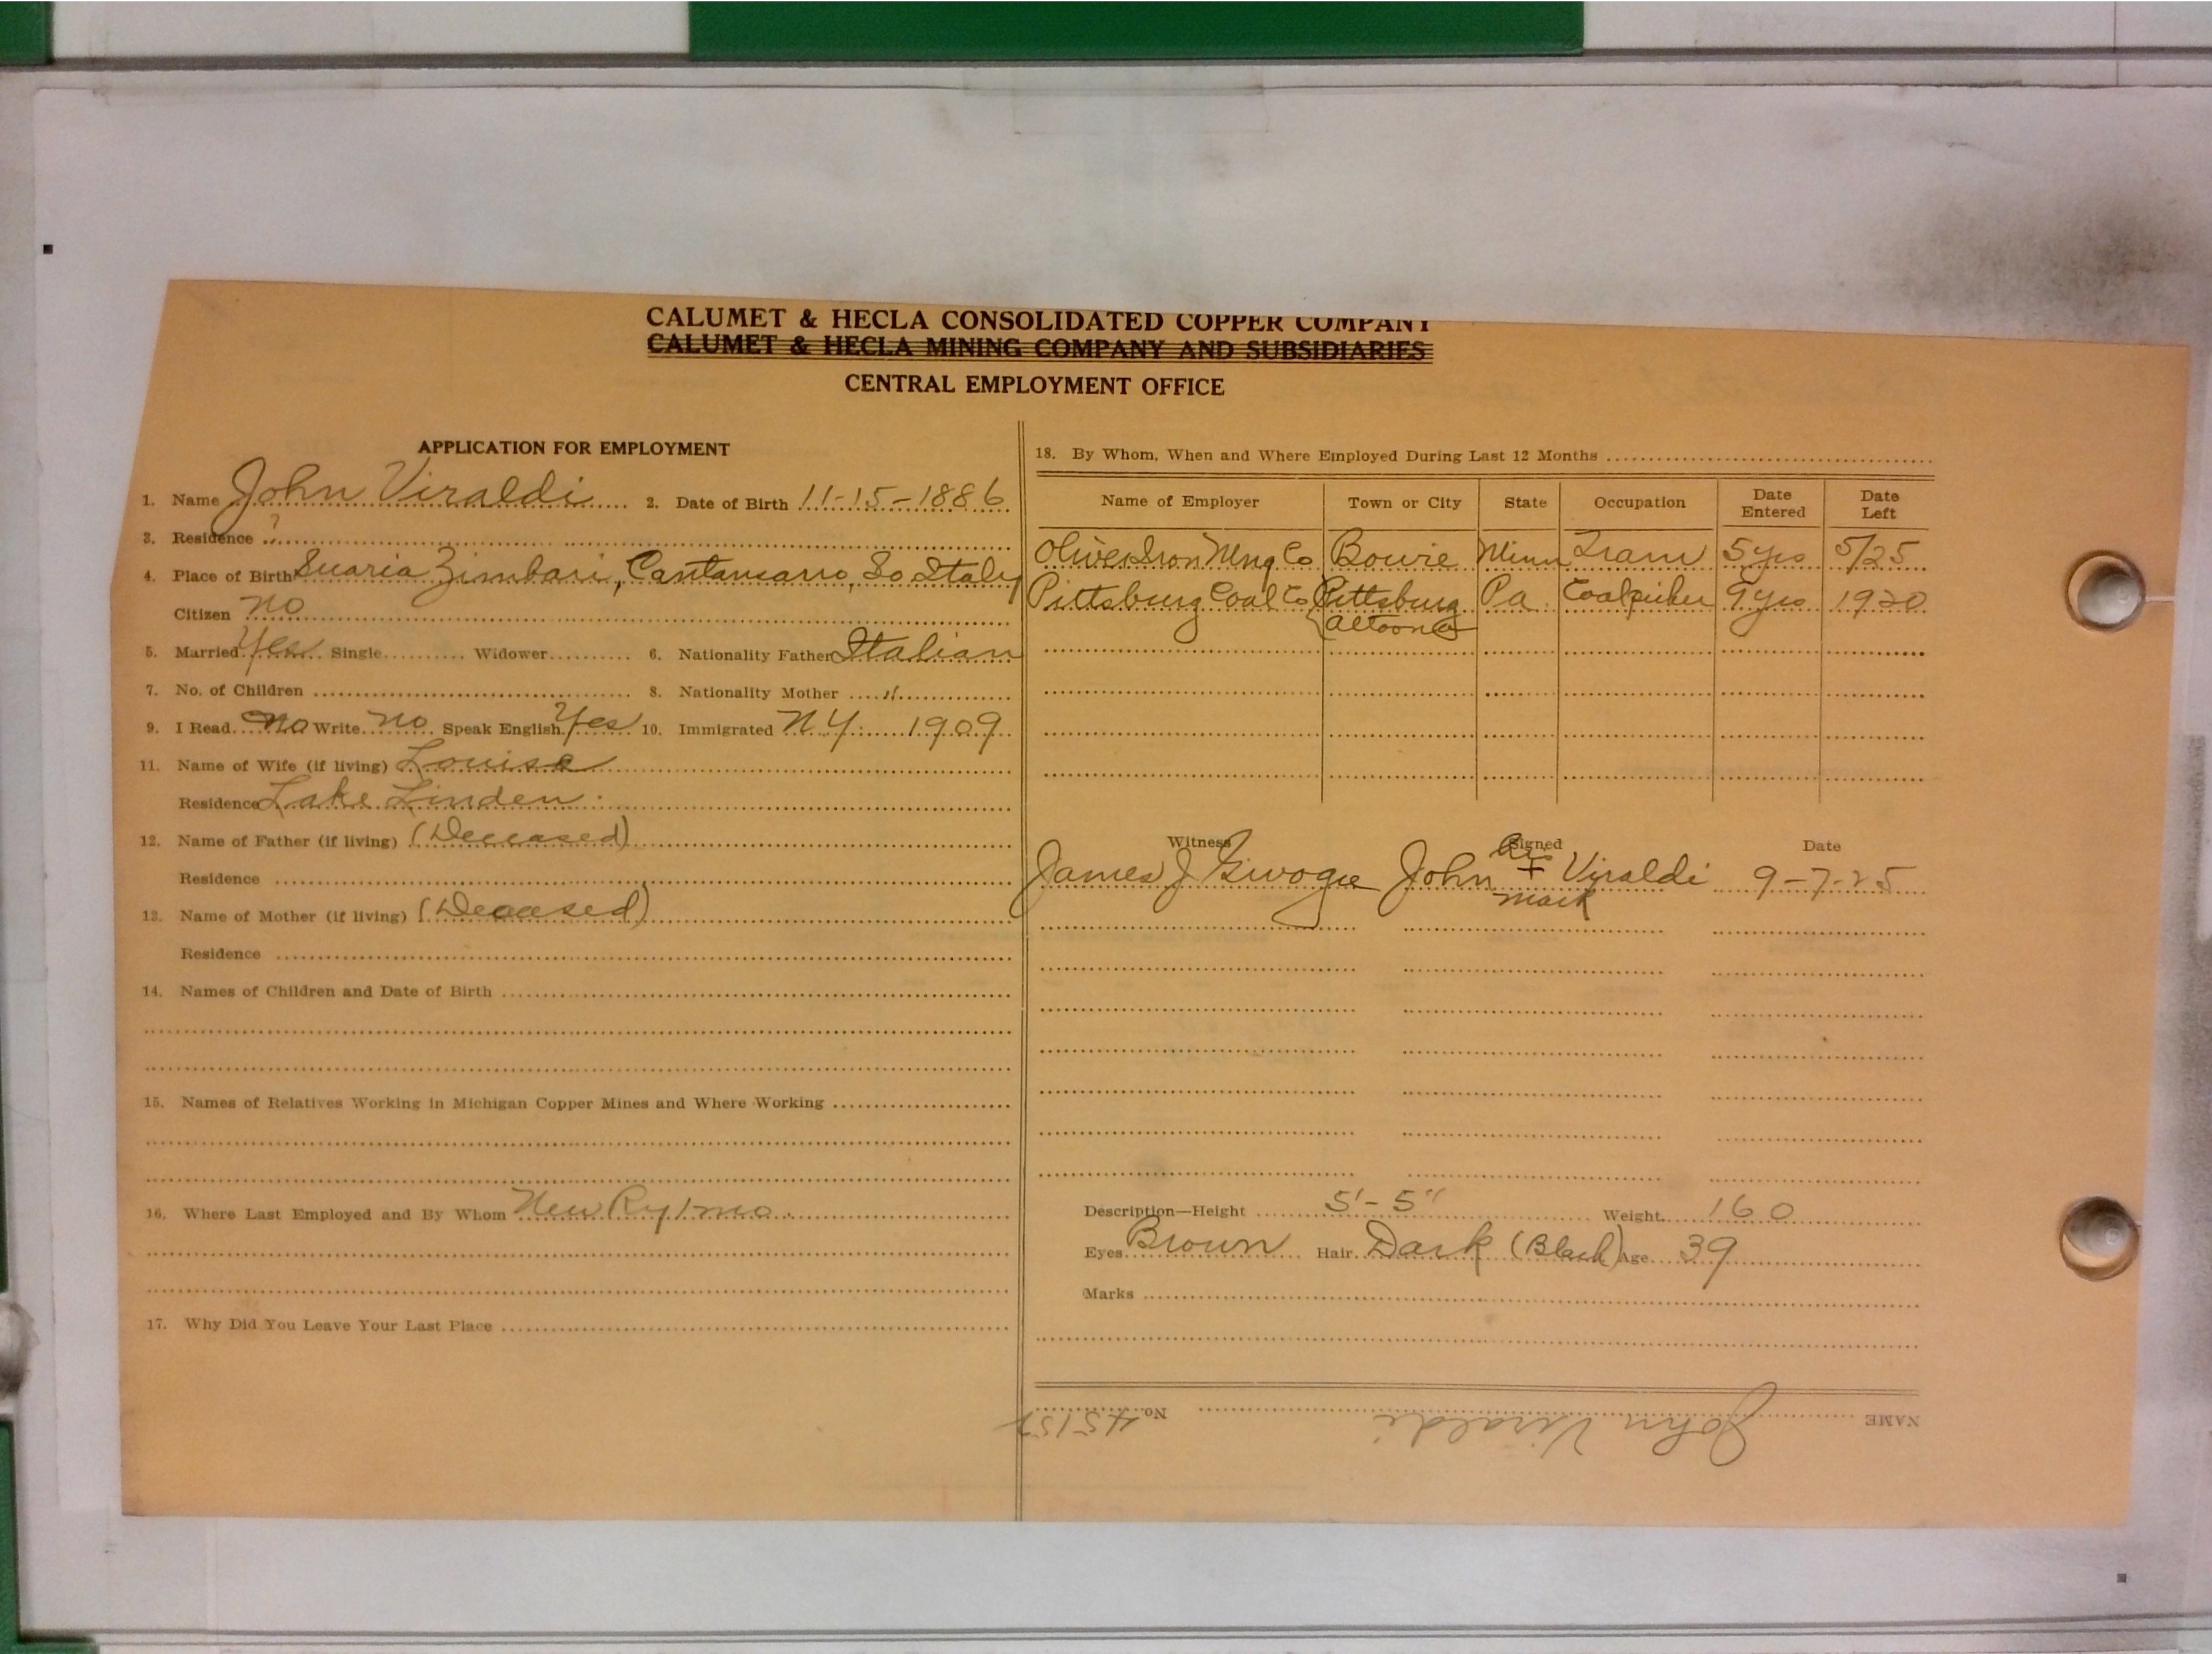 CALUMET & HECLA CONSOLIDATED COPPER COMPANY
CALUMET & HECLA MINING COMPANY AND SUBSIDIARIES
CENTRAL EMPLOYMENT OFFICE
APPLICATION FOR EMPLOYMENT
1. Name John Viraldi 2. Date of Birth 11-15-1886
3. Residence ?
4. Place of Birth Suaria Zimbari, Cantansaro, So Italy
Citizen no
5. Married Yes Single Widower 6. Nationality Father Italian
7. No. of Children 8. Nationality Mother "
9. I Read no Write no Speak English Yes 10. Immigrated N.Y. 1909
11. Name of Wife (if living) Louise
Residence Lake Linden
12. Name of Father (if living) (Deceased)
Residence
13. Name of Mother (if living) (Deceased)
Residence
14. Names of Children and Date of Birth
15. Names of Relatives Working in Michigan Copper Mines and Where Working
16. Where Last Employed and By Whom New Ry 1 mo.
17. Why Did You Leave Your Last Place
18. By Whom, When and Where Employed During Last 12 Months
Name of Employer Town or City State Occupation Date Entered Date Left
Oliver Iron Mng Co Bovie Minn Tram 5 yrs 5/25
Pittsburg Coal Co Pittsburg Pa. Coalpicker 9 yrs 1920
Altoona
Witness Signed Date
James J John his + mark Viraldi 9-7-25
Description—Height 5'-5" Weight 160
Eyes Brown Hair Dark (Black) Age 39
Marks
NAME John Viraldi No. 45152